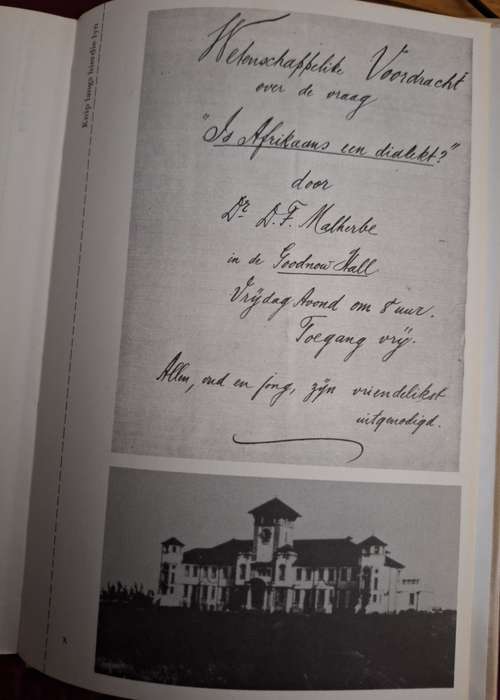 Knip langs hierdie lyn
Wetenschappelike Voordracht
over de vraag
"Is Afrikaans een dialekt?"
door
Dr D. F. Malherbe
in de Goodnow Hall
Vrijdag Avond om 8 uur.
Toegang vrij.
Allen, oud en jong, zijn vriendelikst
uitgenodigd.
X